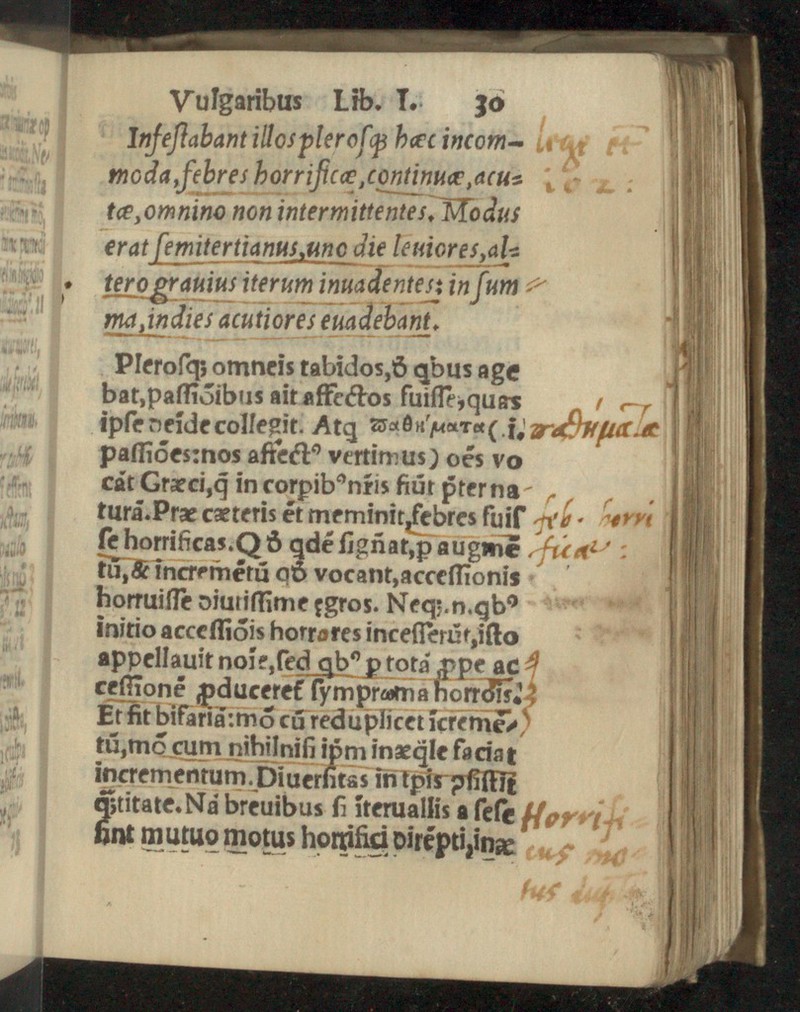 Vulgaribus Lib. I. 30
Infeſtabant illos pleroſqꝫ hæc incom-
moda, febres horrificæ, continuæ, acu=
tæ, omnino non intermittentes. Modus
erat ſemitertianus, uno die leuiores, al=
tero grauius iterum inuadentes; in ſum
ma, indies acutiores euadebant.
Pleroſqꝫ omneis tabidos, ꝺ̃ qbus age
bat, paſſiõibus ait affectos fuiſſe, quas
ipſe ꝺeĩde collegit. Atq ϖαθή́ματα (.i.
paſſiões: nos affectꝰ vertimus) oẽs vo
cãt Græci, q̃ in corpibꝰ nr̃is fiũt p̃ter na-
turã. Præ cæteris ẽt meminit, febres fuiſ
ſe horrificas. Q ꝺ̃ qdẽ ſigñat, p augmẽ
tũ, & incremẽtũ qꝺ̃ vocant, acceſſionis
horruiſſe ꝺiutiſſime ęgros. Neqꝫ .n. qbꝰ
initio acceſſiõis horrores inceſſerũt, iſto
appellauit noĩe, ſed qbꝰ p totã ꝓpe ac
ceſſionẽ ꝓduceret̃ ſymptoma horrõis.
Et fit bifariã: mõ cũ reduplicet ĩcremẽ
tũ, mõ cum nihil niſi ip̃m inæq̃le faciat
incrementum. Diuerſitas in tp̃is ↄſiſtit
q̃titate. Nã breuibus ſi ĩteruallis a ſeſe
ſint mutuo motus horrifici ꝺirẽpti, inæ
lege et
102:
παθηματα
feb. horri
ficae:
Horrifi
cus mo
tus